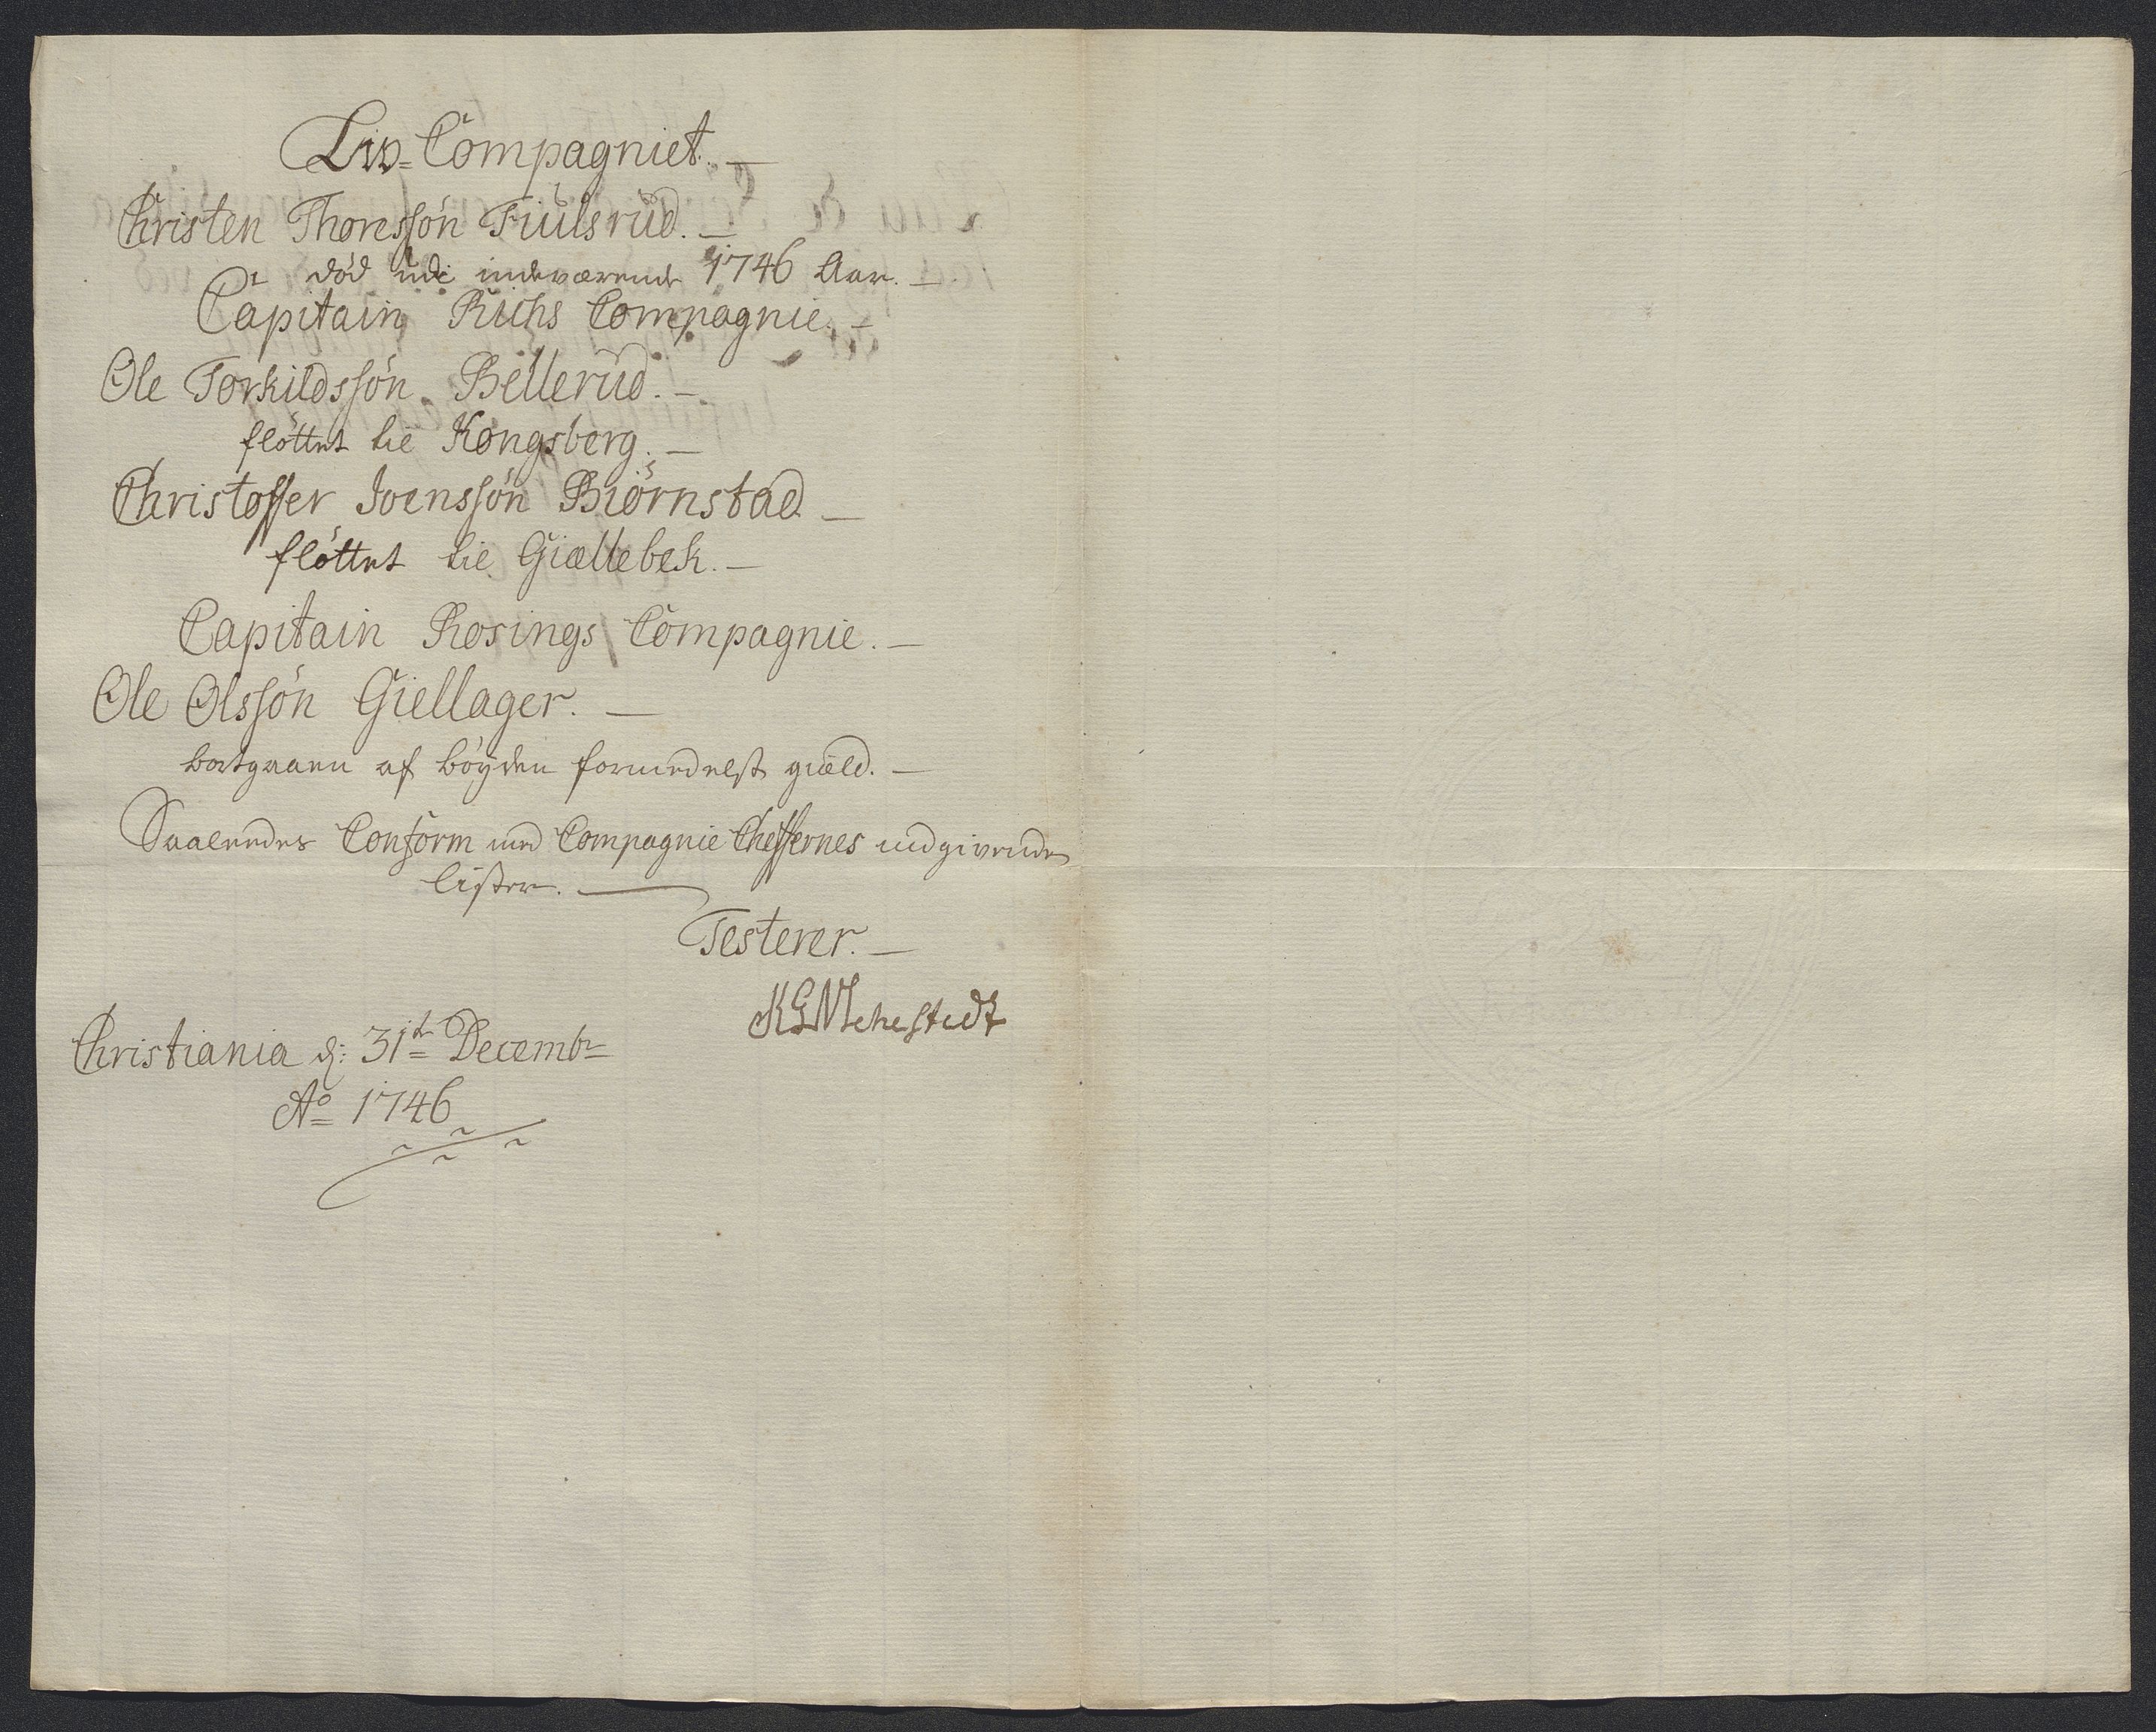 Liv=Compagniet. —
Christen Thoressøn Fiulsrud. —
død udi indeværende 1746 Aar. —
Capitain Richs Compagnie. —
Ole Torkildssøn Bellerud. —
fløttet til Kongsberg. —
Christoffer Joenssøn Biørnstad —
fløttet til Giællebek. —
Capitain Rosings Compagnie. —
Ole Olssøn Giellager. —
bortgaaen af bøyden formedelst giæld. —
Saaledes Conform med Compagnie Cheffernes udgivende
lister. —
Testerer. —
Christiania d: 31te Decembr
Ao 1746